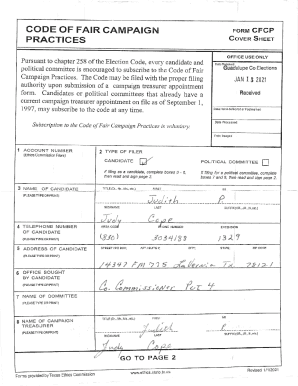 CODE OF FAIR CAMPAIGN PRACTICES
FORM CFCP
COVER SHEET
OFFICE USE ONLY
Pursuant to chapter 258 of the Election Code, every candidate and
political committee is encouraged to subscribe to the Code of Fair
Campaign Practices. The Code may be filed with the proper filing
authority upon submission of a campaign treasurer appointment
form. Candidates or political committees that already have a
current campaign treasurer appointment on file as of September 1,
1997, may subscribe to the code at any time.
Subscription to the Code of Fair Campaign Practices is voluntary.
Guadalupe Co Elections
JAN 2021
Received
Date Processed
1 ACCOUNT NUMBER
(Ethics Commission Filers)
2 TYPE OF FILER
CANDIDATE
POLITICAL COMMITTEE
If filing as a candidate, complete boxes 3 - 6,
then read and sign page 2.
If filing for a political committee, complete
boxes 7 and 8, then read and sign page 2.
3 NAME OF CANDIDATE
(PLEASE TYPE OR PRINT)
FIRST
MI
Judith P
NICKNAME LAST
Judy Cope
4 TELEPHONE NUMBER
OF CANDIDATE
(PLEASE TYPE OR PRINT)
AREA CODE PHONE NUMBER EXTENSION
(830) 3034188 1329
5 ADDRESS OF CANDIDATE
(PLEASE TYPE OR PRINT)
14342 FM 775 LaVernia Tx 78121
6 OFFICE SOUGHT
BY CANDIDATE
(PLEASE TYPE OR PRINT)
Co. Commissioner Pct 4
7 NAME OF COMMITTEE
(PLEASE TYPE OR PRINT)
8 NAME OF CAMPAIGN
TREASURER
(PLEASE TYPE OR PRINT)
FIRST
MI
Judith P
NICKNAME LAST
Judy Cope
GO TO PAGE 2
Forms provided by Texas Ethics Commission
www.ethics.state.tx.us